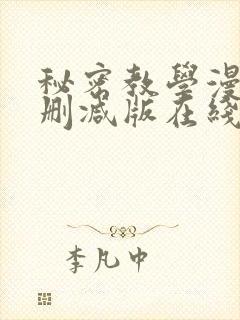 秘密教學漫
刪减版在綫
李凡中